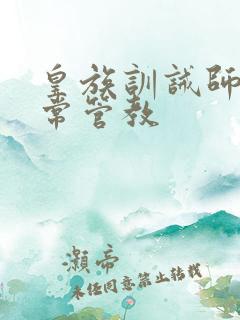 皇族訓誡師
常管教
灝帝
未经同意禁止转载